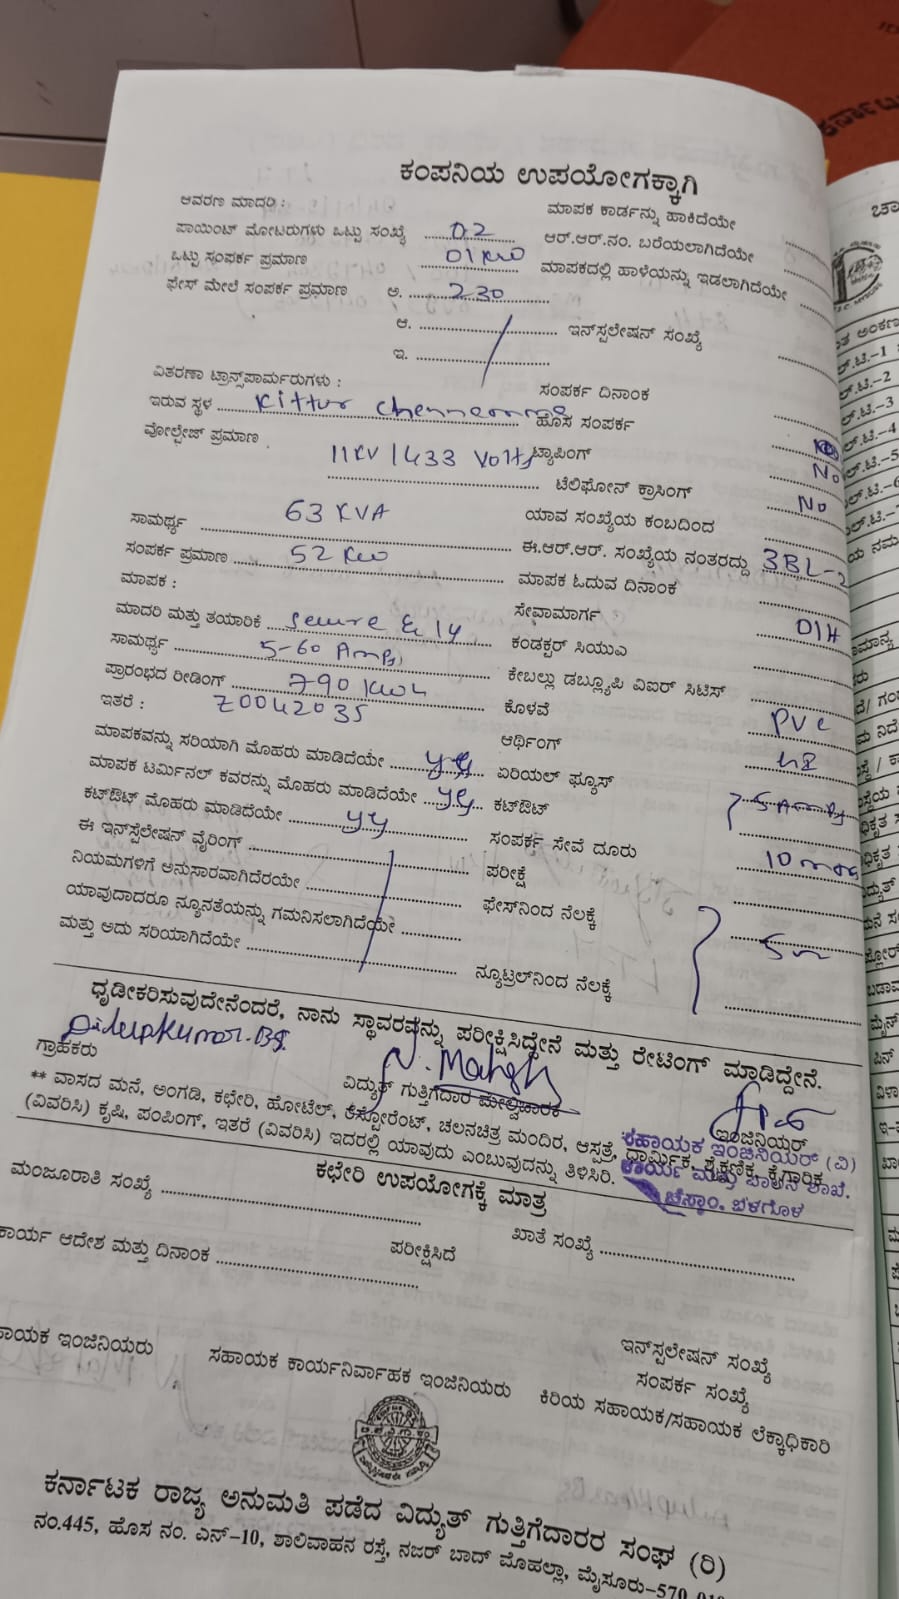 ಕಂಪನಿಯ ಉಪಯೋಗಕ್ಕಾಗಿ
ಆವರಣ ಮಾದರಿ :
ಮಾಪಕ ಕಾರ್ಡನ್ನು ಹಾಕಿದೆಯೇ
ಪಾಯಿಂಟ್ ಮೋಟರುಗಳು ಒಟ್ಟು ಸಂಖ್ಯೆ 02
ಆರ್.ಆರ್.ನಂ. ಬರೆಯಲಾಗಿದೆಯೇ
ಒಟ್ಟು ಸಂಪರ್ಕ ಪ್ರಮಾಣ 01 KW
ಮಾಪಕದಲ್ಲಿ ಹಾಳೆಯನ್ನು ಇಡಲಾಗಿದೆಯೇ
ಫೇಸ್ ಮೇಲೆ ಸಂಪರ್ಕ ಪ್ರಮಾಣ ಅ. 230
ಆ.
ಇನ್‌ಸ್ಪಲೇಷನ್ ಸಂಖ್ಯೆ
ಇ.
ವಿತರಣಾ ಟ್ರಾನ್ಸ್‌ಪಾರ್ಮರುಗಳು :
ಸಂಪರ್ಕ ದಿನಾಂಕ
ಇರುವ ಸ್ಥಳ Kittur Chennamma
ಹೊಸ ಸಂಪರ್ಕ
ವೋಲ್ಟೇಜ್ ಪ್ರಮಾಣ 11KV/433 Volts
ಟ್ಯಾಪಿಂಗ್ No
ಟೆಲಿಫೋನ್ ಕ್ರಾಸಿಂಗ್ No
ಸಾಮರ್ಥ್ಯ 63 KVA
ಯಾವ ಸಂಖ್ಯೆಯ ಕಂಬದಿಂದ
ಸಂಪರ್ಕ ಪ್ರಮಾಣ 52 KW
ಈ.ಆರ್.ಆರ್. ಸಂಖ್ಯೆಯ ನಂತರದ್ದು 3BL-2
ಮಾಪಕ :
ಮಾಪಕ ಓದುವ ದಿನಾಂಕ
ಮಾದರಿ ಮತ್ತು ತಯಾರಿಕೆ Secure
ಸೇವಾಮಾರ್ಗ O/H
ಸಾಮರ್ಥ್ಯ 5-60 Amps
ಕಂಡಕ್ಟರ್ ಸಿಯುಎ
ಪ್ರಾರಂಭದ ರೀಡಿಂಗ್ 790 KWH
ಕೇಬಲ್ಲು ಡಬ್ಲ್ಯೂಪಿ ವಿಐರ್ ಸಿಟಿಸ್
ಇತರೆ : 70042035
ಕೊಳವೆ PVC
ಮಾಪಕವನ್ನು ಸರಿಯಾಗಿ ಮೊಹರು ಮಾಡಿದೆಯೇ
ಆರ್ಥಿಂಗ್
ಮಾಪಕ ಟರ್ಮಿನಲ್ ಕವರನ್ನು ಮೊಹರು ಮಾಡಿದೆಯೇ
ಏರಿಯಲ್ ಫ್ಯೂಸ್
ಕಟ್‌ಔಟ್ ಮೊಹರು ಮಾಡಿದೆಯೇ
ಕಟ್‌ಔಟ್ 5 Amps
ಈ ಇನ್‌ಸ್ಪೆಲೇಷನ್ ವೈರಿಂಗ್
ಸಂಪರ್ಕ ಸೇವೆ ದೂರು
ನಿಯಮಗಳಿಗೆ ಅನುಸಾರವಾಗಿದೆರಯೇ
ಪರೀಕ್ಷೆ
ಯಾವುದಾದರೂ ನ್ಯೂನತೆಯನ್ನು ಗಮನಿಸಲಾಗಿದೆಯೇ
ಫೇಸ್‌ನಿಂದ ನೆಲಕ್ಕೆ
ಮತ್ತು ಅದು ಸರಿಯಾಗಿದೆಯೇ
ನ್ಯೂಟ್ರಲ್‌ನಿಂದ ನೆಲಕ್ಕೆ
ಧೃಡೀಕರಿಸುವುದೇನೆಂದರೆ, ನಾನು ಸ್ಥಾವರವನ್ನು ಪರೀಕ್ಷಿಸಿದ್ದೇನೆ ಮತ್ತು ರೇಟಿಂಗ್ ಮಾಡಿದ್ದೇನೆ.
Dileepkumar.BS.
N. Mahesh
ಗ್ರಾಹಕರು
ವಿದ್ಯುತ್ ಗುತ್ತಿಗೆದಾರ ಮೇಲ್ವಿಚಾರಕ
ಇಂಜಿನಿಯರ್
** ವಾಸದ ಮನೆ, ಅಂಗಡಿ, ಕಛೇರಿ, ಹೋಟೆಲ್, ರೆಸ್ಟೋರೆಂಟ್, ಚಲನಚಿತ್ರ ಮಂದಿರ, ಆಸ್ಪತ್ರೆ, ಧಾರ್ಮಿಕ, ಶೈಕ್ಷಣಿಕ, ಕೈಗಾರಿಕ
(ವಿವರಿಸಿ) ಕೃಷಿ, ಪಂಪಿಂಗ್, ಇತರೆ (ವಿವರಿಸಿ) ಇದರಲ್ಲಿ ಯಾವುದು ಎಂಬುವುದನ್ನು ತಿಳಿಸಿರಿ.
ಸಹಾಯಕ ಇಂಜಿನಿಯರ್ (ವಿ)
ಕಾರ್ಯ ಮತ್ತು ಪಾಲನೆ ಶಾಖೆ.
ಚೆಸ್ಕಾಂ, ಬೆಳಗೊಳ
ಕಛೇರಿ ಉಪಯೋಗಕ್ಕೆ ಮಾತ್ರ
ಮಂಜೂರಾತಿ ಸಂಖ್ಯೆ
ಖಾತೆ ಸಂಖ್ಯೆ
ಕಾರ್ಯ ಆದೇಶ ಮತ್ತು ದಿನಾಂಕ
ಪರೀಕ್ಷಿಸಿದೆ
ಇನ್‌ಸ್ಪಲೇಷನ್ ಸಂಖ್ಯೆ
ಸಂಪರ್ಕ ಸಂಖ್ಯೆ
ಹಾಯಕ ಇಂಜಿನಿಯರು
ಸಹಾಯಕ ಕಾರ್ಯನಿರ್ವಾಹಕ ಇಂಜಿನಿಯರು
ಕಿರಿಯ ಸಹಾಯಕ/ಸಹಾಯಕ ಲೆಕ್ಕಾಧಿಕಾರಿ
ಕರ್ನಾಟಕ ರಾಜ್ಯ ಅನುಮತಿ ಪಡೆದ ವಿದ್ಯುತ್ ಗುತ್ತಿಗೆದಾರರ ಸಂಘ (ರಿ)
ನಂ.445, ಹೊಸ ನಂ. ಎನ್-10, ಶಾಲಿವಾಹನ ರಸ್ತೆ, ನಜರ್ ಬಾದ್ ಮೊಹಲ್ಲಾ, ಮೈಸೂರು-570